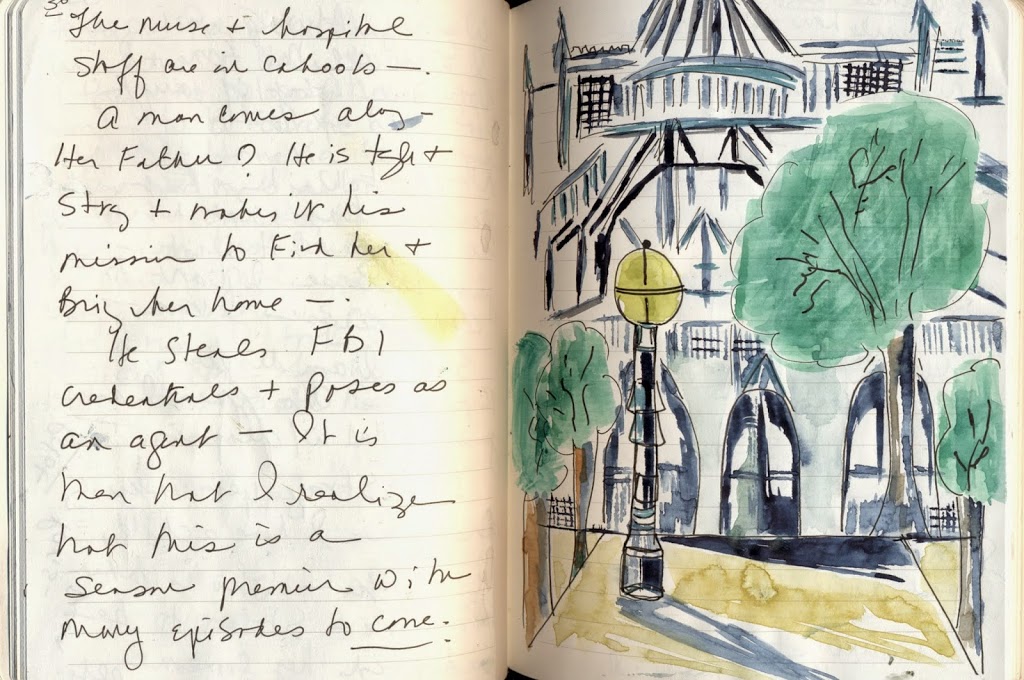 The nurse + hospital
staff are in cahoots —.
A man comes along —
Her Father? He is tough +
Strong + makes it his
mission to Find her +
Bring her home —.
He steals FBI
credentials + poses as
an agent — It is
then that I realize
that this is a
season premier with
many episodes to come.